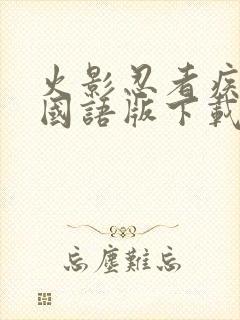 火影忍者疾
國語版下載
忘塵難忘